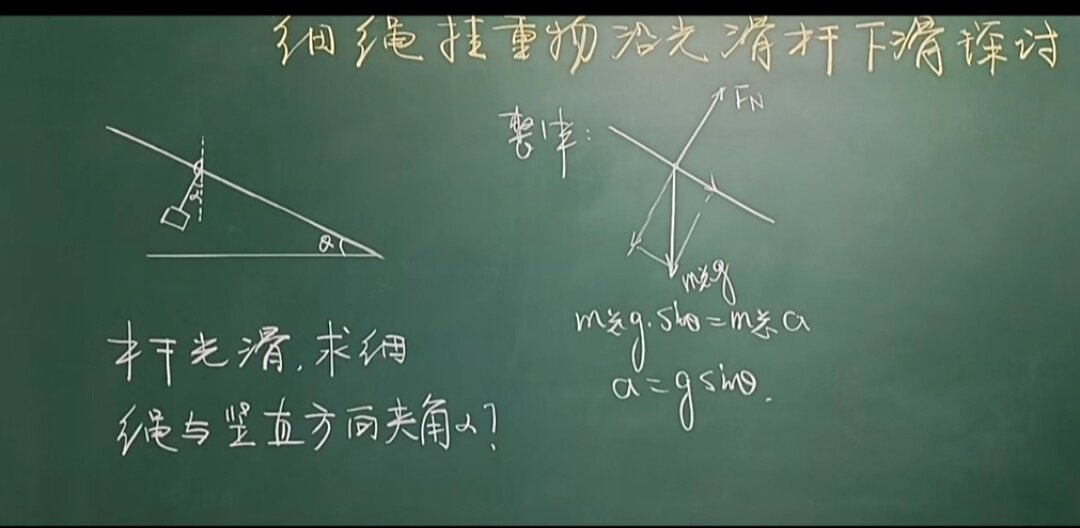 细绳挂重物沿光滑杆下滑探讨
整体:
FN
α
θ
m总g
m总g·sinθ=m总a
a=gsinθ.
杆光滑,求细
绳与竖直方向夹角α?